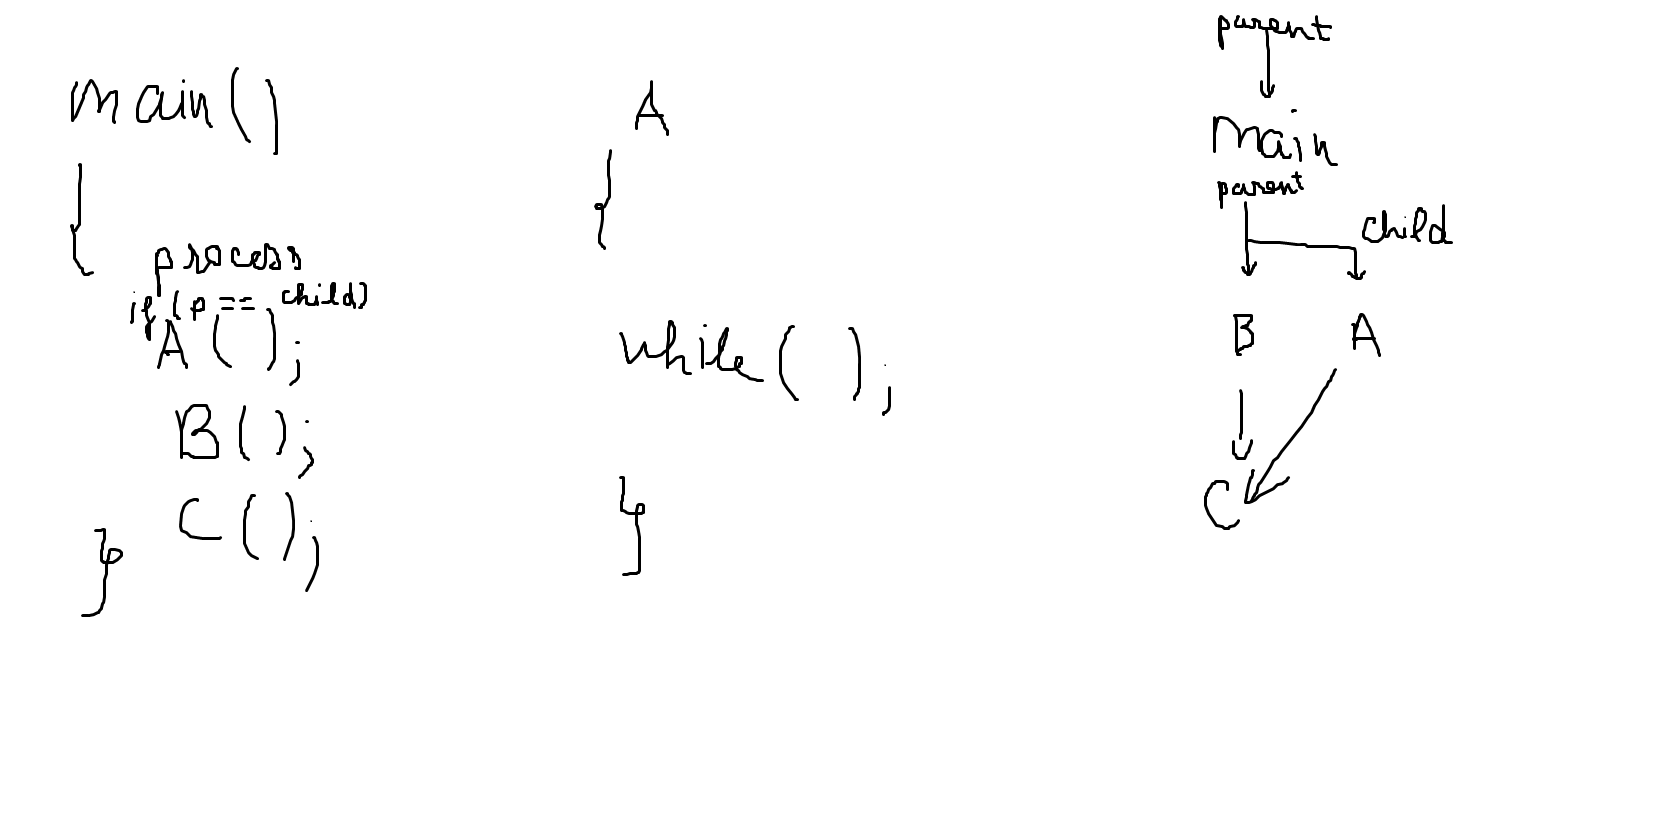 main()
{
process
if (p == child)
A();
B();
C();
}
A
{
while( );
}
parent
Main
parent
child
B A
C